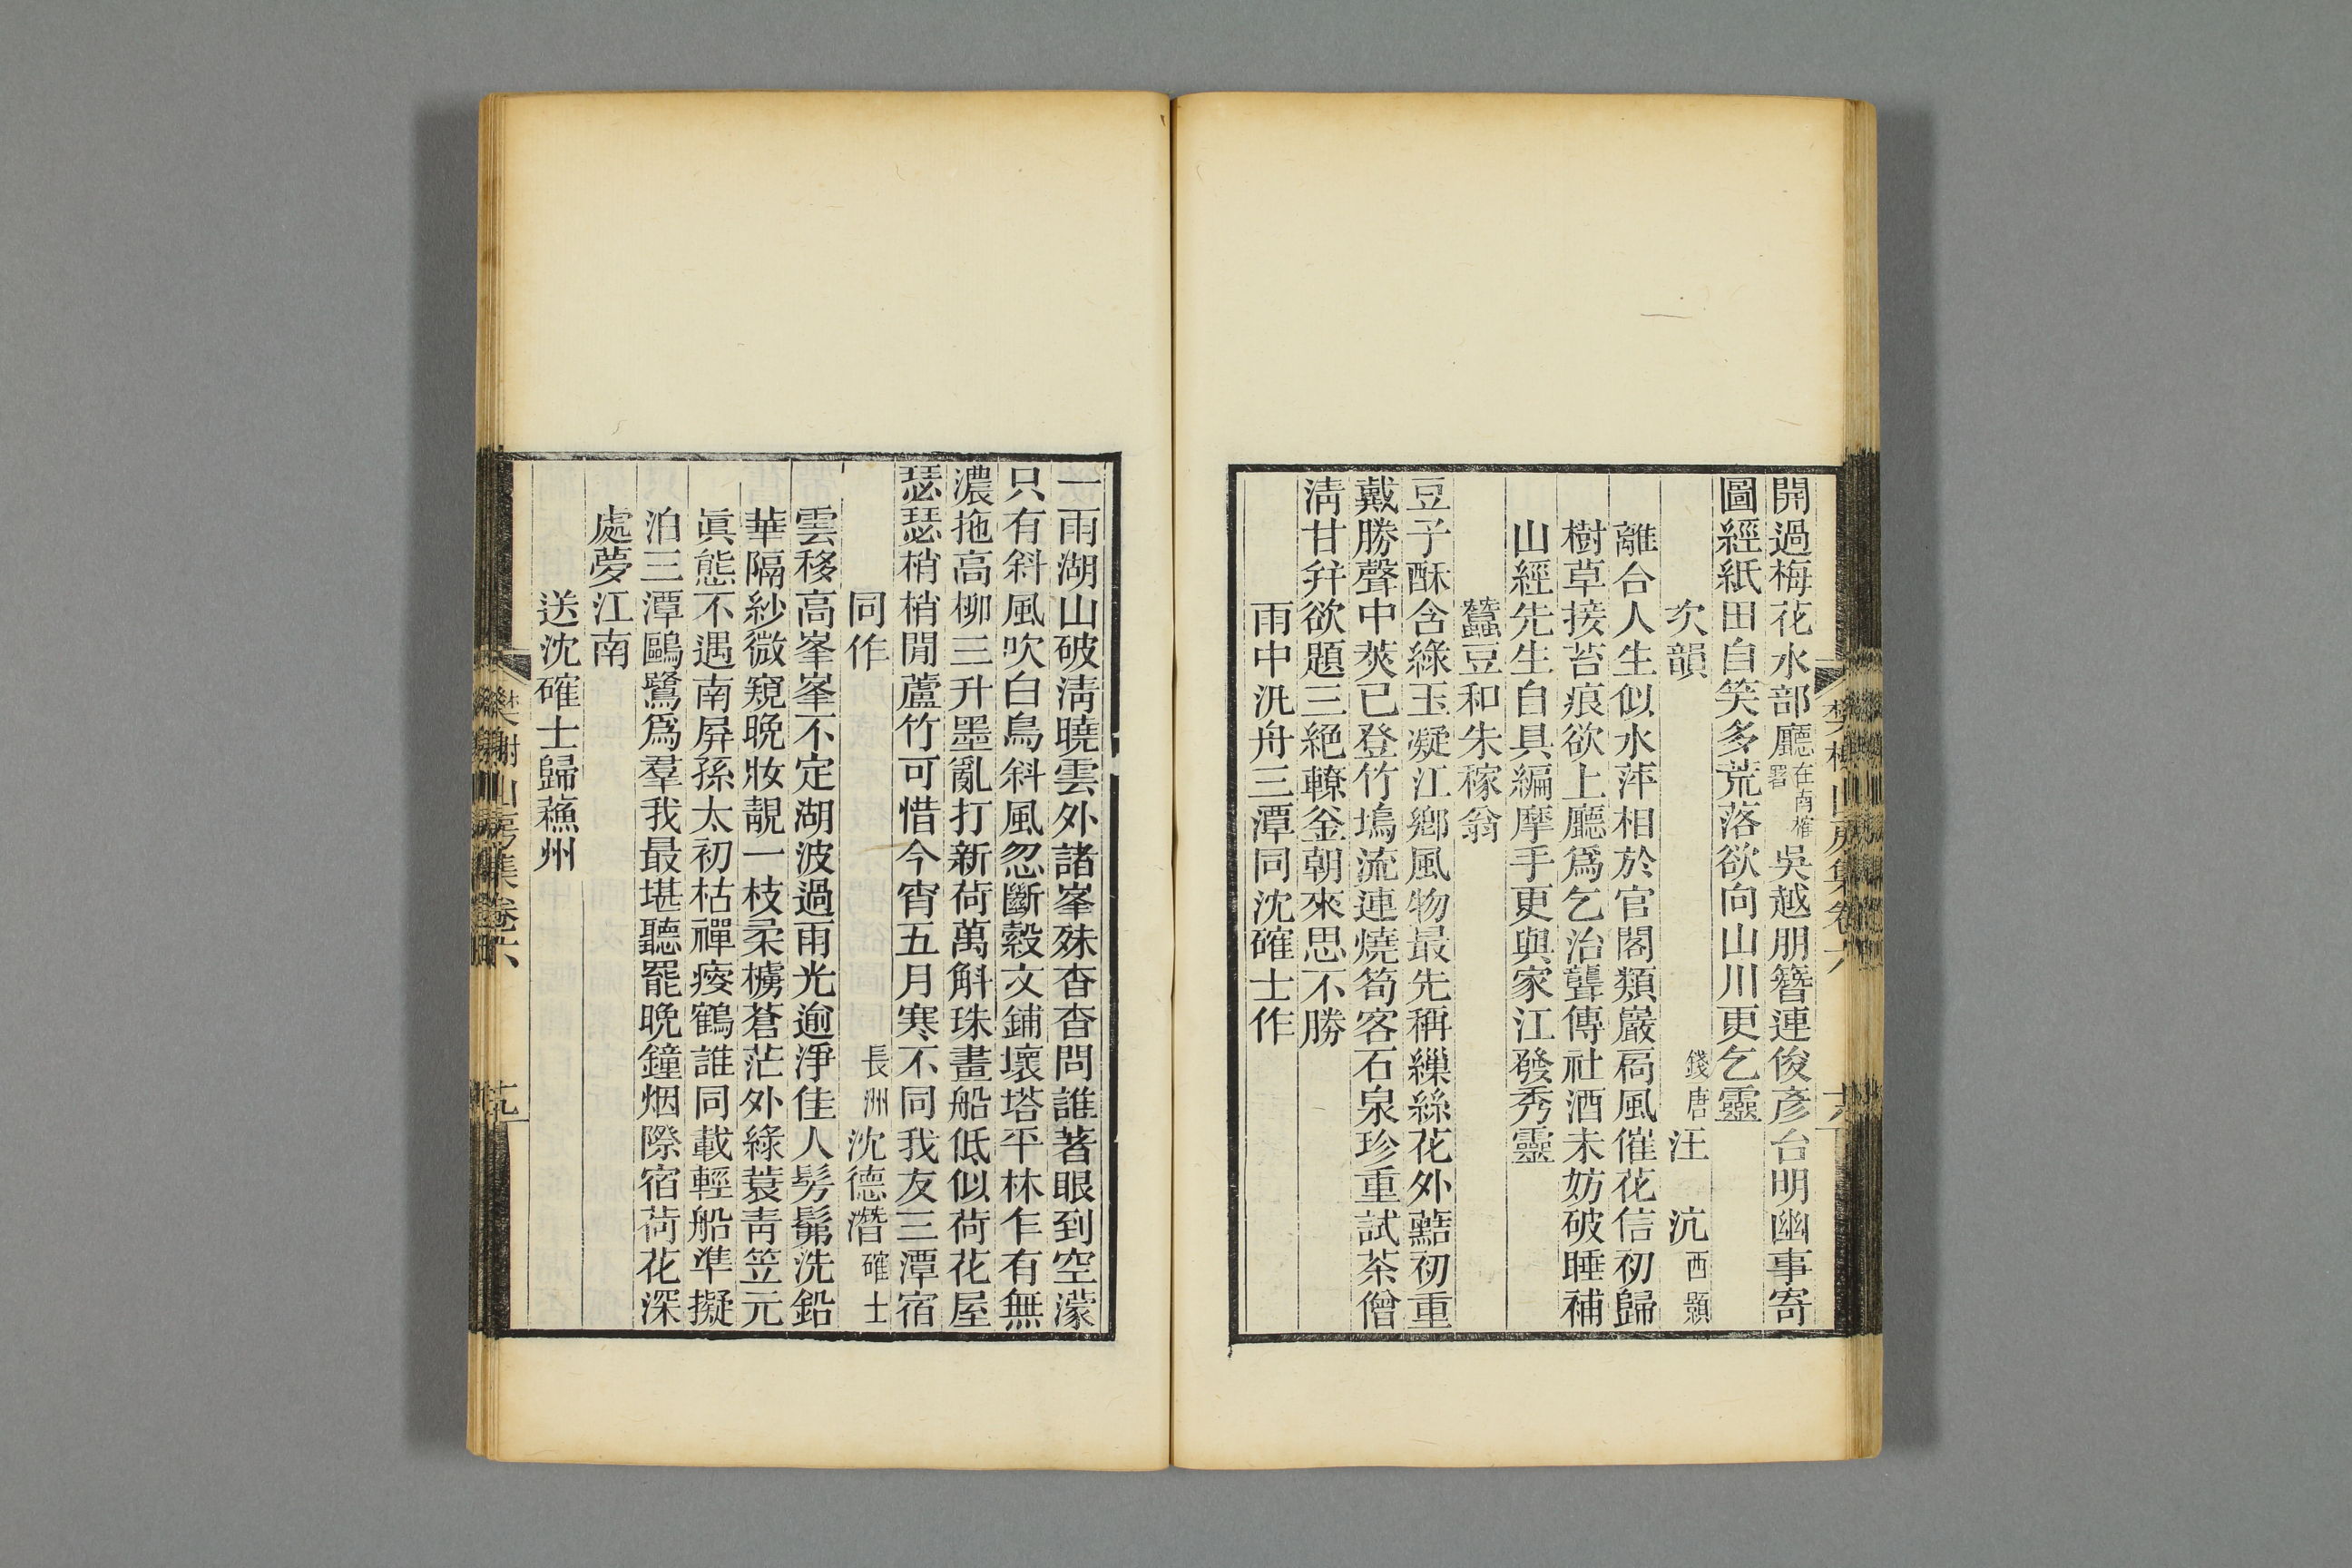 開過梅花水部廳在南榷署吳越朋簪連俊彥台明幽事寄
圖經紙田自笑多荒落欲向山川更乞靈
次韻 錢唐汪沆西顥
離合人生似水萍相於官閣類巖扃風催花信初歸
樹草接苔痕欲上廳爲乞治聾傳社酒未妨破睡補
山經先生自具編摩手更與家江發秀靈
蠶豆和朱稼翁
豆子酥含綠玉凝江鄉風物最先稱繅絲花外蕌初重
戴勝聲中莢已登竹塢流連燒筍客石泉珍重試茶僧
淸甘幷欲題三絕轑釜朝來思不勝
雨中汎舟三潭同沈確士作
一雨湖山破淸曉雲外諸峯殊杳杳問誰著眼到空濛
只有斜風吹白鳥斜風忽斷縠文鋪壞塔平林乍有無
濃拖高柳三升墨亂打新荷萬斛珠畫船低似荷花屋
瑟瑟梢梢閒蘆竹可惜今宵五月寒不同我友三潭宿
同作 長洲沈德潛確士
雲移高峯峯不定湖波過雨光逾淨佳人髣髴洗鉛
華隔紗微窺晚妝靚一枝柔櫓蒼茫外綠蓑靑笠元
眞態不遇南屛孫太初枯禪瘦鶴誰同載輕船準擬
泊三潭鷗鷺爲羣我最堪聽罷晚鐘烟際宿荷花深
處夢江南
送沈確士歸蘓州
樊榭山房集卷六